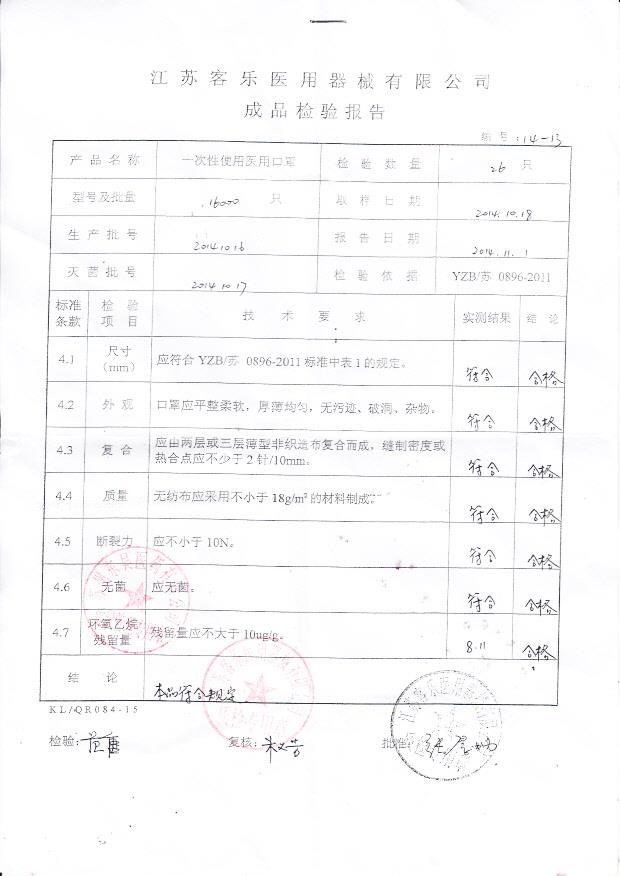 江苏客乐医用器械有限公司
成品检验报告
编号:14-13
产品名称 一次性使用医用口罩 检验数量 26 只
型号及批量 16000 只 取样日期 2014.10.18
生产批号 20141016 报告日期 2014.11.1
灭菌批号 20141017 检验依据 YZB/苏 0896-2011
标准条款 检验项目 技术要求 实测结果 结论
4.1 尺寸(mm) 应符合YZB/苏 0896-2011标准中表1的规定。 符合 合格
4.2 外观 口罩应平整柔软，厚薄均匀，无污迹、破洞、杂物。 符合 合格
4.3 复合 应由两层或三层薄型非织造布复合而成，缝制密度或
热合点应不少于2针/10mm。 符合 合格
4.4 质量 无纺布应采用不小于18g/m²的材料制成。 符合 合格
4.5 断裂力 应不小于10N。 符合 合格
4.6 无菌 应无菌。 符合 合格
4.7 环氧乙烷残留量 残留量应不大于10ug/g。 8.11 合格
结论 本品符合规定
KL/QR084-15
检验: 复核: 朱文芳 批准: